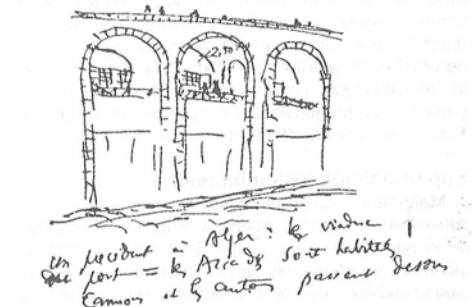 un précédent à Alger : les viaducs
port = les Arcades sont habitées
camions et les autos passent dessus